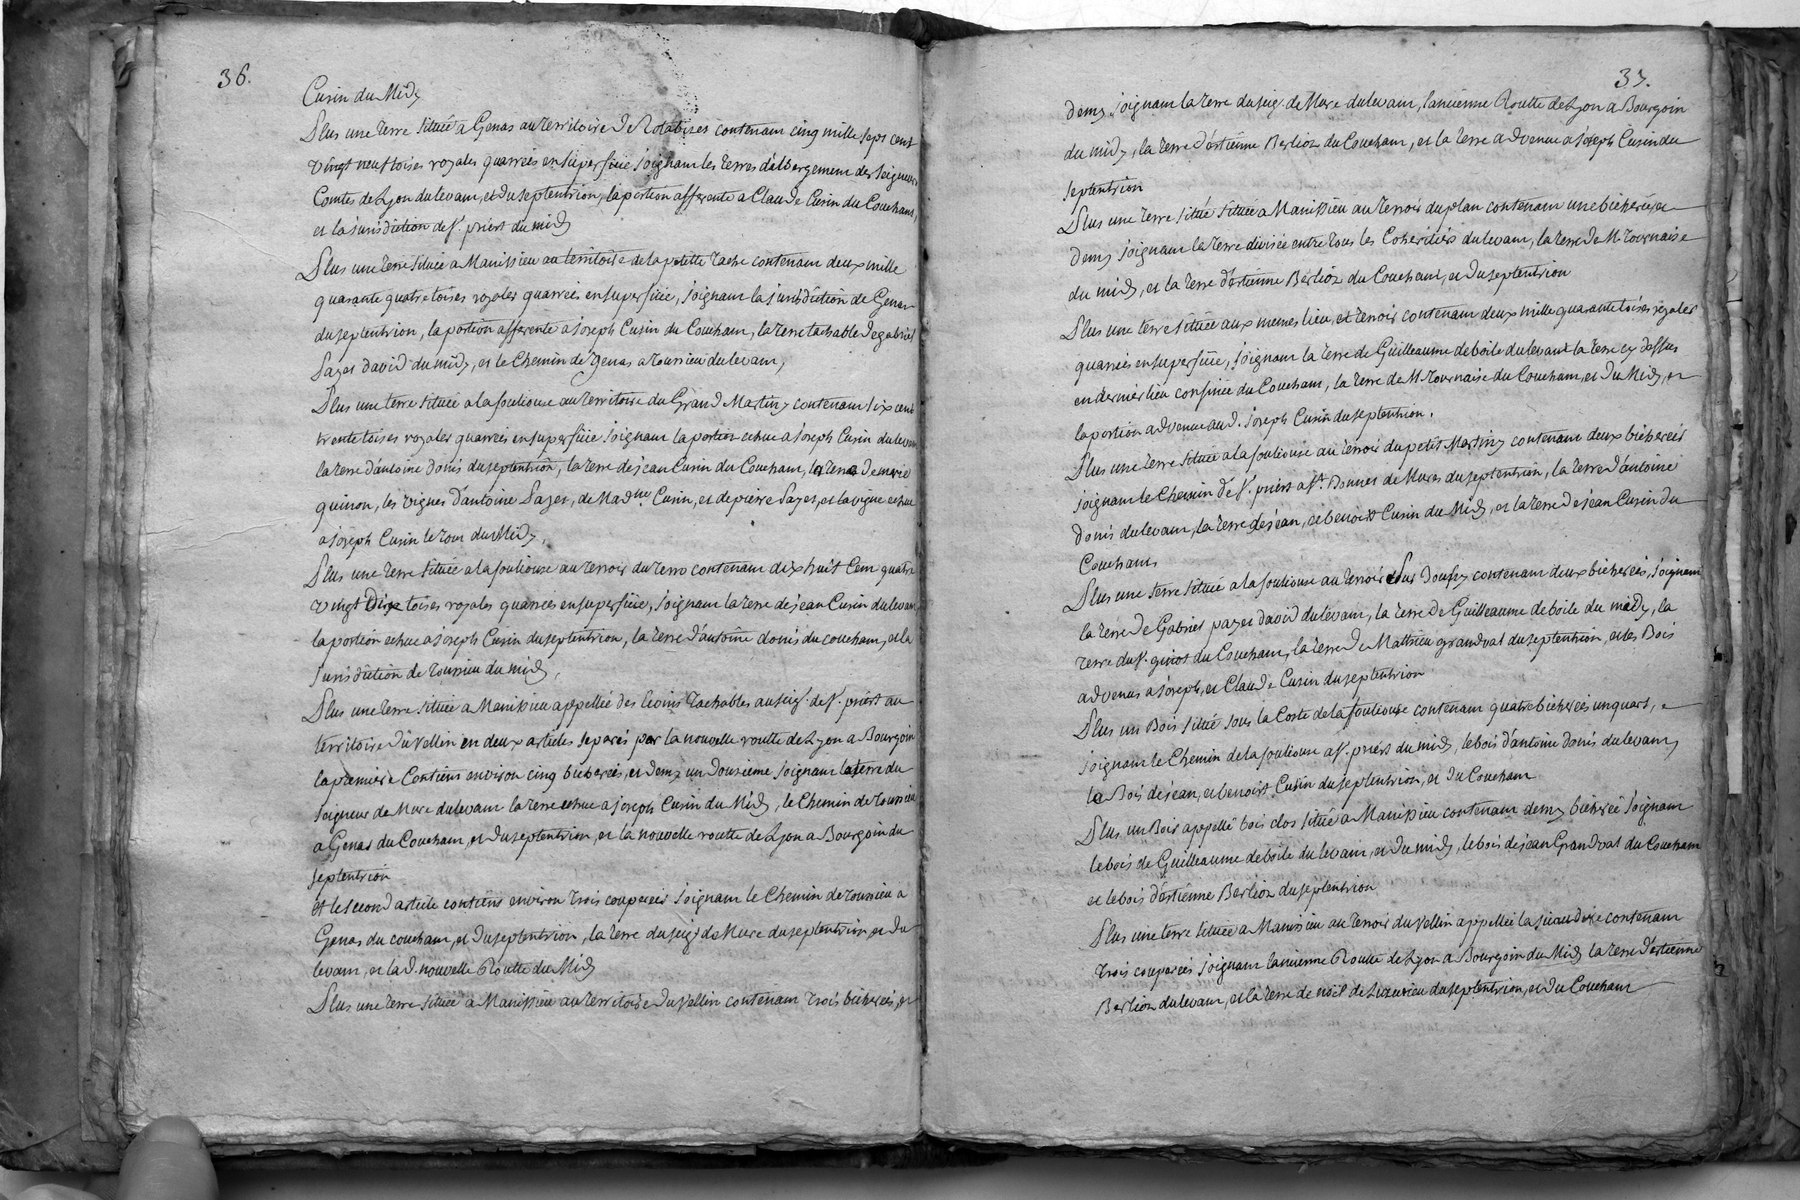 36.
Cusin du Midy
Plus une terre située a Genas au territoire de Rotabizes contenant cinq mille sept cent
vingt neuf toises royales quarrées en superficie joignant les terres d'albergement des seigneurs
Comtes de Lyon du levant, et du septentrion, la portion afferente a Claude Cusin du Couchant,
et la jurisdiction de St. priest du midy
Plus une terre située a Manissieu au territoire de la petitte tache contenant deux mille
quarante quatre toises royales quarrées en superficie, joignant la jurisdiction de Genas
du septentrion, la portion afferente a joseph Cusin du Couchant, la terre tachable de gabriel
Payet david du midy, et le Chemin de genas a toussieu du levant,
Plus une terre située a la fouliouse au territoire du Grand Martiny contenant six cent
trente toises royales quarrées en superficie joignant la portion echue a joseph Cusin du levant
la terre d'antoine donis du septentrion, la terre de jean Cusin du Couchant, la terre de
quinon, les vignes d'antoine Payet, de Madne. Cusin, et de pierre Payet, et la vigne echue
a joseph Cusin le tout du Midy,
Plus une terre située a la fouliouse au terroir du terro contenant dix huit Cent quatre
vingt Dix toises royales quarrées en superficie, joignant la terre de jean Cusin du levant
la portion echue a joseph Cusin du septentrion, la terre d'antoine donis du couchant, et la
jurisdiction de toussieu du midy,
Plus une terre située a Manissieu appellée des Levins tachables au seigr. de St. priest au
territoire du Vellin en deux articles separés par la nouvelle routte de Lyon a Bourgoin
la premiere Contient environ cinq bicherées, et demy un Douzieme joignant la terre du
seigneur de Mure du levant la terre echue a joseph Cusin du Midy, le Chemin de toussieu
a Genas du Couchant, et du septentrion, et la nouvelle routte de Lyon a Bourgoin du
septentrion
et le second article contient environ trois couperées joignant le Chemin de toussieu a
Genas du couchant, et du septentrion, la terre du seigr. de Mure du septentrion et du
levant, et lad. nouvelle Routte du Midy
Plus une terre située a Manissieu au territoire du Vellin contenant trois bicherées, et
37.
demy joignant la terre du seigr. de Mure du levant, l'ancienne Routte de Lyon a Bourgoin
du midy, la terre d'estienne Berlioz du Couchant, et la terre advenue a joseph Cusin du
septentrion
Plus une terre située située a Manissieu au terroir du plan contenant une bicherée et
demy joignant la terre divisée entre tous les Coheritiers du levant, la terre de Mr. tournaise
du midy, et la terre d'estienne Berlioz du Couchant, et du septentrion
Plus une terre située aux memes lieu, et terroir contenant deux mille quarante toises royales
quarrées en superficie, joignant la terre de Guilleaume deboile du levant la terre cy dessus
en dernier lieu confinée du Couchant, la terre de Mr. tournaise du Couchant, et du Midy, et
la portion advenue aud. joseph Cusin du septentrion.
Plus une terre située a la fouliouse au terroir du petit Martiny contenant deux bicherées
joignant le Chemin de St. priest a St. Bonnet de Mures du septentrion, la terre d'antoine
donis du levant, la terre de jean, et benoist Cusin du Midy, et la terre de jean Cusin du
Couchant,
Plus une terre située a la fouliouse au terroir contenant deux bicherées, joignant
la terre de Gabriel payet david du levant, la terre de Guilleaume deboile du midy, la
terre du Sr. ginot du Couchant, la terre de Mathieu grandval du septentrion, et les Bois
advenus a joseph, et Claude Cusin du septentrion
Plus un Bois situé sous la Coste de la fouliouse contenant quatre bicherées un quart,
joignant le Chemin de la fouliouse a St. priest du midy, le bois d'antoine donis du levant,
le Bois de jean, et benoist Cusin du septentrion, et du Couchant
Plus un Bois appellé bois clos situé a Manissieu contenant demy bicherée joignant
le bois de Guilleaume deboile du levant, et du midy, le bois de jean Grandval du Couchant
et le bois d'estienne Berlioz du septentrion
Plus une terre située a Manissieu au terroir du Vellin appellée la contenant
trois couperées joignant l'ancienne Routte de Lyon a Bourgoin du Midy la terre d'estienne
Berlioz du levant, et la terre de noël de Luzurieu du septentrion, et du Couchant